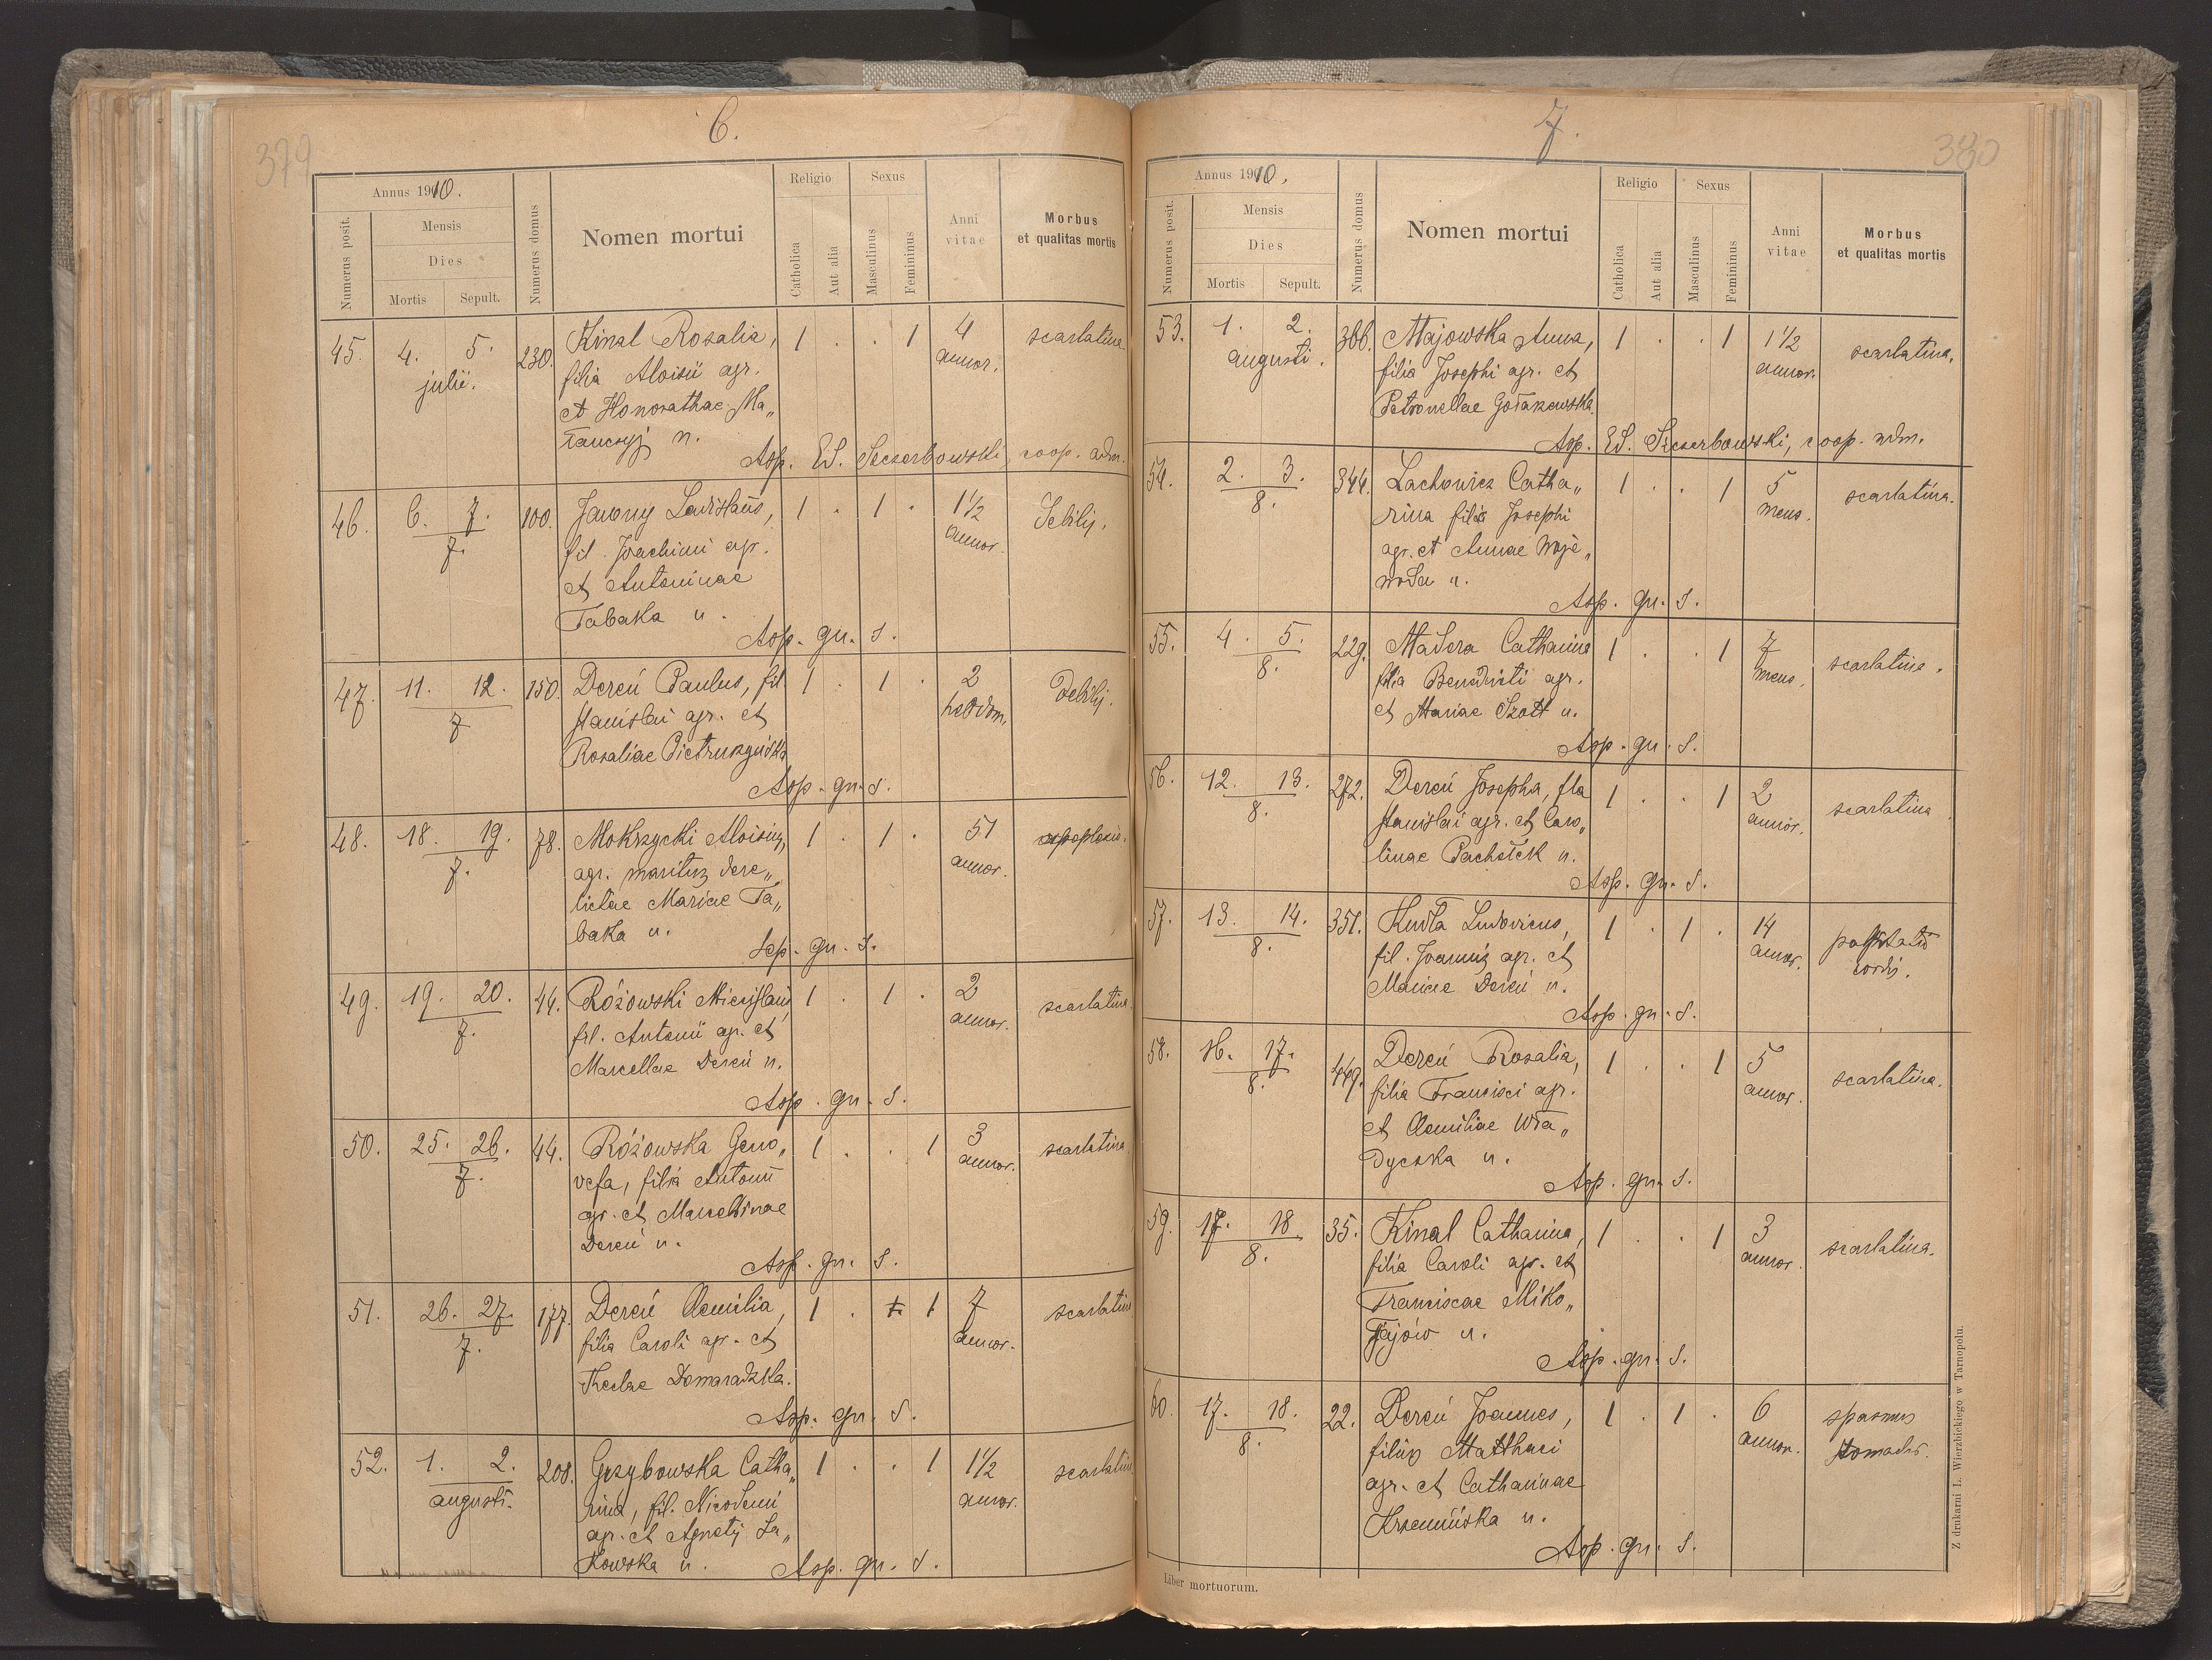 379
6.
Annus 1910.
Numerus posit.
Mensis
Dies
Mortis
Sepult.
Numerus domus
Nomen mortui
Religio
Catholica
Aut alia
Sexus
Masculinus
Femininus
Anni
vitae
Morbus
et qualitas mortis
45. 4. 5. 230. Kinal Rosalia, 1 . . 1 4 scarlatina.
julii. filia Aloisii agr. annor.
et Honorathae Ma„
łanczyj n.
Asp. Ed. Szczerbowski, coop. adm.
46. 6. 7. 100. Jawny Ladislaus, 1 . 1 . 1½ Debilij.
7. fil. Joachimi agr. annor.
et Antoninae
Tabaka n.
Asp. qu. s.
47. 11. 12. 150. Dereń Paulus, fil. 1 . 1 . 2 Debilij.
7 Stanislai agr. et hebdom.
Rosaliae Pietruszyńska
Asp. qu. s.
48. 18. 19. 78. Mokrzycki Aloisius, 1 . 1 . 51 apoplexia.
7. agr. maritus dere„ annor.
lictae Mariae Ta„
baka n.
Sep. qu. s.
49. 19. 20. 44. Różowski Miecislaus, 1 . 1 . 2 scarlatina.
7. fil. Antonii agr. et annor.
Marcellae Dereń n.
Asp. qu. s.
50. 25. 26. 44. Różowska Geno„ 1 . . 1 3 scarlatina
7. vefa, filia Antonii annor.
agr. et Marcellinae
Dereń n.
Asp. qu. s.
51. 26. 27. 177. Dereń Aemilia, 1 . 1 7 scarlatina
7. filia Caroli agr. et annor.
Theclae Domaradzka.
Asp. qu. s.
52. 1. 2. 208. Grzybowska Catha„ 1 . . 1 1½ scarlatina
augusti. rina, fil. Nicodemi annor.
agr. et Agnetis Sa„
kowska n.
Asp. qu. s.
380
7.
Annus 1910.
Numerus posit.
Mensis
Dies
Mortis
Sepult.
Numerus domus
Nomen mortui
Religio
Catholica
Aut alia
Sexus
Masculinus
Femininus
Anni
vitae
Morbus
et qualitas mortis
53. 1. 2. 366. Majowska Anna, 1 . . 1 1½ scarlatina.
augusti. filia Josephi agr. et annor.
Petronellae Gołaszewska.
Asp. Ed. Szczerbowski, coop. adm.
54. 2. 3. 344. Lachowicz Catha„ 1 . . 1 5 scarlatina.
8. rina filia Josephi mens.
agr. et Annae Woje„
woda n.
Asp. qu. s.
55. 4. 5. 229. Madera Catharina 1 . . 1 7 scarlatina.
8. filia Benedicti agr. mens.
et Mariae Szott n.
Asp. qu. s.
56. 12. 13. 272. Dereń Josepha, fla 1 . . 1 2 scarlatina.
8. Stanislai agr. et Caro„ annor.
linae Pachołek n.
Asp. qu. s.
57. 13. 14. 351. Kudła Ludovicus, 1 . 1 . 14 palpitatio
8. fil. Joannis agr. et annor. cordis.
Mariae Dereń n.
Asp. qu. s.
58. 16. 17. 449. Dereń Rosalia, 1 . . 1 5 scarlatina.
8. filia Francisci agr. annor.
et Aemiliae Wła„
dyczka n.
Asp. qu. s.
59. 17. 18 35. Kinal Catharina, 1 . . 1 3 scarlatina.
8. filia Caroli agr. et annor.
Franciscae Miko„
łajów n.
Asp. qu. s.
60. 17. 18. 22. Dereń Joannes, 1 . 1 . 6 spasmus
8. filius Matthaei annor. stomachi.
agr. et Catharinae
Krzemińska n.
Asp. qu. s.
Liber mortuorum.
Z drukarni L. Wierzbickiego w Tarnopolu.